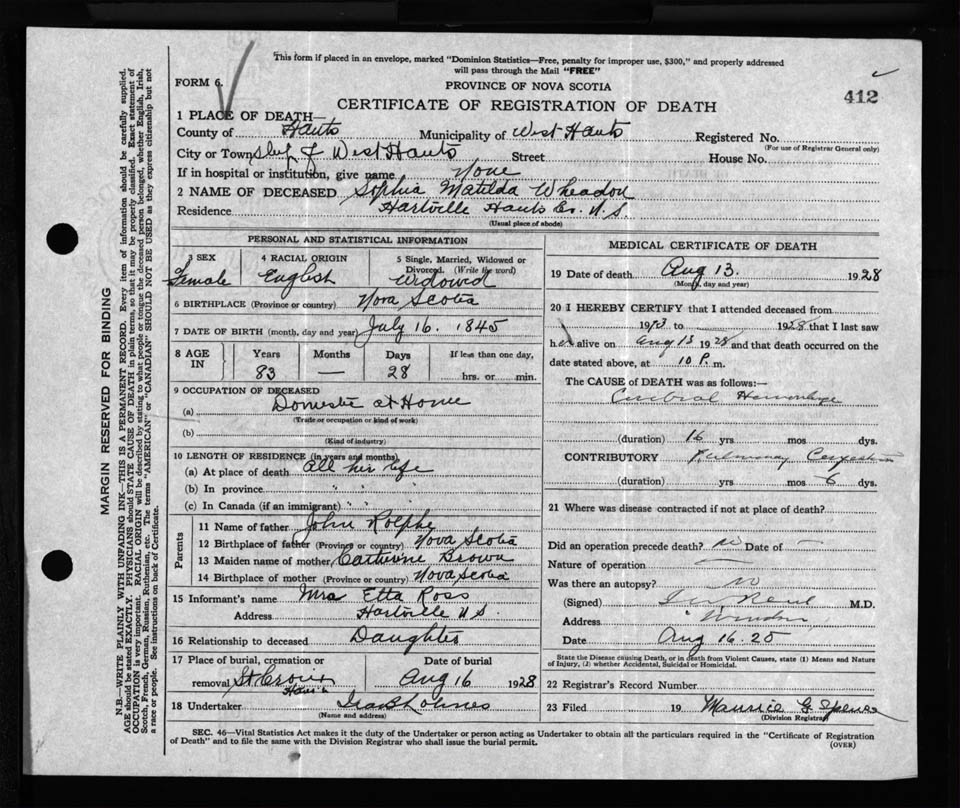 This form if placed in an envelope, marked "Dominion Statistics—Free, penalty for improper use, $300," and properly addressed
will pass through the Mail "FREE"
FORM 6.
PROVINCE OF NOVA SCOTIA
412
CERTIFICATE OF REGISTRATION OF DEATH
1 PLACE OF DEATH—
County of Hants Municipality of West Hants Registered No.
(For use of Registrar General only)
City or Town of West Hants Street House No.
If in hospital or institution, give name None
2 NAME OF DECEASED Sophia Matilda Wheadon
Residence Hartville Hants Co. N.S.
(Usual place of abode)
PERSONAL AND STATISTICAL INFORMATION
3 SEX 4 RACIAL ORIGIN 5 Single, Married, Widowed or
Divorced. (Write the word)
Female English Widowed
6 BIRTHPLACE (Province or country) Nova Scotia
7 DATE OF BIRTH (month, day and year) July 16. 1845
8 AGE IN Years Months Days If less than one day,
83 — 28 hrs. or min.
9 OCCUPATION OF DECEASED
(a) Domestic at Home
(Trade or occupation or kind of work)
(b)
(Kind of industry)
10 LENGTH OF RESIDENCE (in years and months)
(a) At place of death All her life
(b) In province " " "
(c) In Canada (if an immigrant) " " "
Parents
11 Name of father John Rolphe
12 Birthplace of father (Province or country) Nova Scotia
13 Maiden name of mother Catherine Brown
14 Birthplace of mother (Province or country) Nova Scotia
15 Informant's name Mrs Etta Ross
Address Hartville N.S.
16 Relationship to deceased Daughter
17 Place of burial, cremation or Date of burial
removal St Croix Aug 16 1928
Hants
18 Undertaker
(Name and address)
MEDICAL CERTIFICATE OF DEATH
19 Date of death Aug 13. 1928
(Month, day and year)
20 I HEREBY CERTIFY that I attended deceased from
19 to 1928 that I last saw
her alive on Aug 13 1928 and that death occurred on the
date stated above, at 10 P. m.
The CAUSE of DEATH was as follows:—
Cerebral Hemorrhage
(duration) 16 yrs mos dys.
CONTRIBUTORY Pulmonary Congestion
(duration) yrs mos 6 dys.
21 Where was disease contracted if not at place of death?
Did an operation precede death? no Date of —
Nature of operation —
Was there an autopsy? no
(Signed) M.D.
Address Windsor
Date Aug 16. 28
State the Disease causing Death, or in death from Violent Causes, state (1) Means and Nature
of Injury, (2) whether Accidental, Suicidal or Homicidal.
22 Registrar's Record Number
23 Filed 19 Maurice G.
(Division Registrar)
SEC. 46—Vital Statistics Act makes it the duty of the Undertaker or person acting as Undertaker to obtain all the particulars required in the "Certificate of Registration
of Death" and to file the same with the Division Registrar who shall issue the burial permit.
(OVER)
MARGIN RESERVED FOR BINDING
N.B.—WRITE PLAINLY WITH UNFADING INK—THIS IS A PERMANENT RECORD. Every item of information should be carefully supplied.
AGE should be stated EXACTLY. PHYSICIANS should STATE CAUSE OF DEATH in plain terms, so that it may be properly classified. Exact statement of
OCCUPATION is very important. RACIAL ORIGIN will be described by stating to what people or tongue the deceased person belonged, whether English, Irish,
Scotch, French, German, Russian, Ruthenian, etc. The terms "AMERICAN" or "CANADIAN" SHOULD NOT BE USED as they express citizenship but not
a race or people. See instructions on back of Certificate.